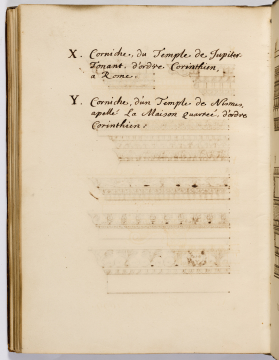 X. Corniche, du Temple de Jupiter
Tonant d'ordre Corinthien,
a Rome.
Y. Corniche, d'un Temple de Nismes,
apellé La Maison quarreé, d'ordre
Corinthien.